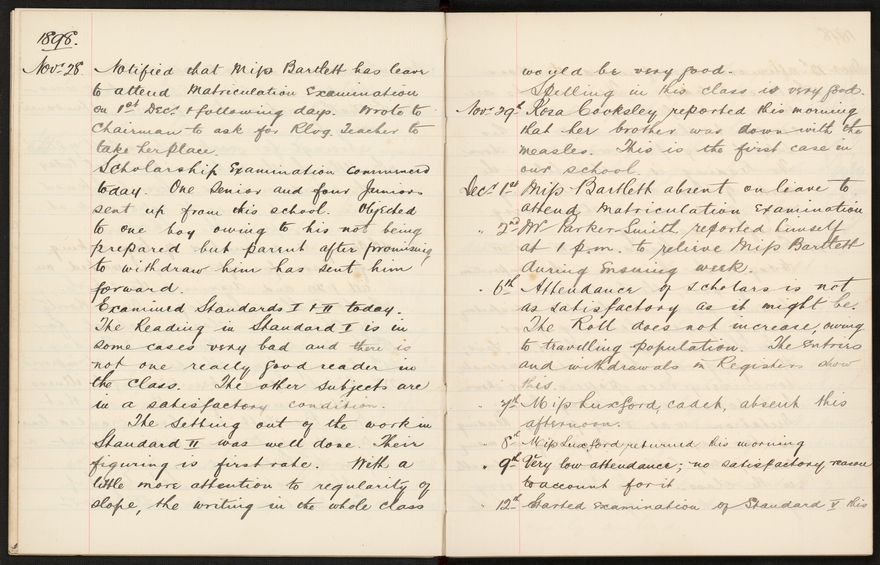 1898.
Novr 28. Notified that Miss Bartlett has leave
to attend Matriculation Examination
on 1st Decr. & following days. Wrote to
Chairman to ask for Rlvg. Teacher to
take her place.
Scholarship Examination commenced
today. One Senior and four Juniors
sent up from this school. Objected
to one boy owing to his not being
prepared but parent after promising
to withdraw him has sent him
forward.
Examined Standards I & II today.
The Reading in Standard I is in
some cases very bad and there is
not one really good reader in
the class. The other subjects are
in a satisfactory condition.
The setting out of the work in
Standard II was well done. Their
figuring is first rate. With a
little more attention to regularity of
slope, the writing in the whole class
would be very good.
Spelling in this class is very good.
Novr 29th Rosa Cooksley reported this morning
that her brother was down with the
measles. This is the first case in
our school.
Decr 1st Miss Bartlett absent on leave to
attend Matriculation Examination
" 2nd Mr Parker-Smith reported himself
at 1 p.m. to relieve Miss Bartlett
during ensuing week.
" 6th Attendance of scholars is not
as satisfactory as it might be.
The Roll does not increase, owing
to travelling population. The entries
and withdrawals in Registers show
this.
" 7th Miss Luxford, cadet, absent this
afternoon.
" 8th Miss Luxford returned this morning
" 9th Very low attendance; no satisfactory reason
to account for it
" 12th Started examination of Standard V this